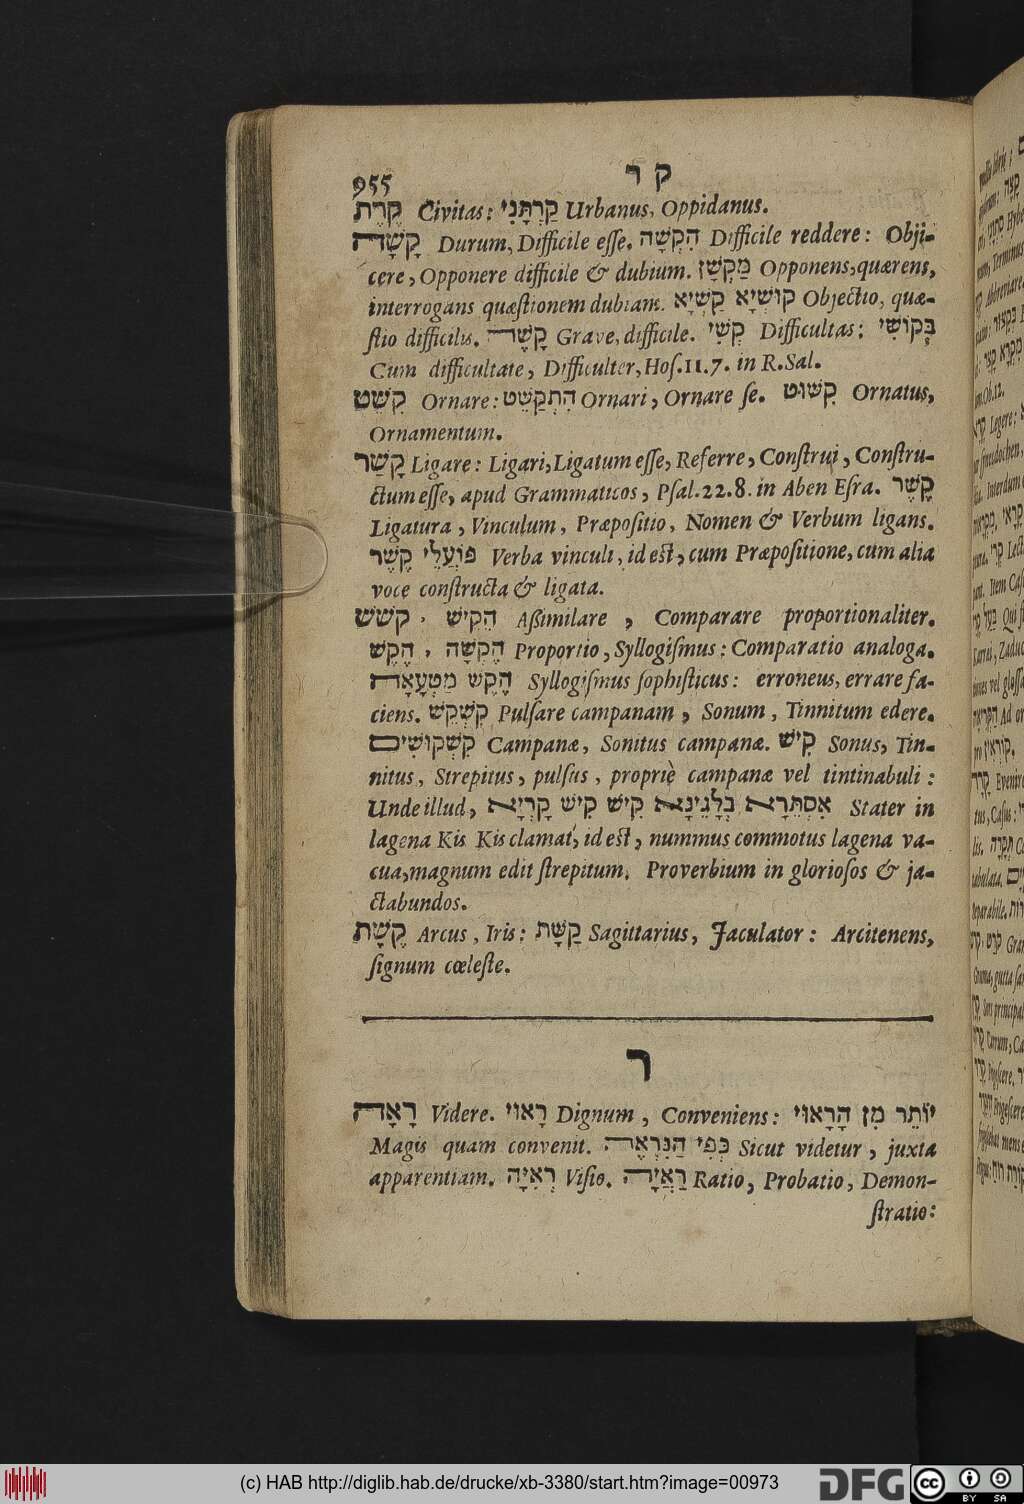 955 ק ר
קֶרֶת Civitas: קַרְתָּנִי Urbanus, Oppidanus.
קָשָׁה Durum, Difficile eſſe. הִקְשָׁה Difficile reddere: Obji-
cere, Opponere difficile & dubium. מַקְשָׁן Opponens, quærens,
interrogans quæſtionem dubiam. קוּשְׁיָא קַשְׁיָא Objectio, quæ-
ſtio difficilis. קָשֶׁה Grave, difficile. קְשִׁי Difficultas: בְּקוֹשִׁי
Cum difficultate, Difficulter, Hoſ. 11. 7. in R. Sal.
קִשֵּׁט Ornare: הִתְקַשֵּׁט Ornari, Ornare ſe. קִשּׁוּט Ornatus,
Ornamentum.
קָשַׁר Ligare: Ligari, Ligatum eſſe, Referre, Conſtrui, Conſtru-
ctum eſſe, apud Grammaticos, Pſal. 22. 8. in Aben Eſra. קֶשֶׁר
Ligatura, Vinculum, Præpoſitio, Nomen & Verbum ligans.
פּוֹעֲלֵי קֶשֶׁר Verba vinculi, id eſt, cum Præpoſitione, cum alia
voce conſtructa & ligata.
קשש. הִקִּישׁ Aßimilare, Comparare proportionaliter.
הֶקֵּשׁ. הֶקֵּשָׁה Proportio, Syllogiſmus: Comparatio analoga.
הֶקֵּשׁ מַטְעָאָה Syllogiſmus ſophiſticus: erroneus, errare fa-
ciens. קִשְׁקֵשׁ Pulſare campanam, Sonum, Tinnitum edere.
קִשְׁקוּשִׁים Campanæ, Sonitus campanæ. קִישׁ Sonus, Tin-
nitus, Strepitus, pulſus, propriè campanæ vel tintinabuli:
Unde illud, אִסְתֵּרָא בְּלָגֵינָא קִישׁ קִישׁ קָרְיָא Stater in
lagena Kis Kis clamat, id eſt, nummus commotus lagena va-
cua, magnum edit ſtrepitum. Proverbium in glorioſos & ja-
ctabundos.
קֶשֶׁת Arcus, Iris: קַשָּׁת Sagittarius, Jaculator: Arcitenens,
ſignum cœleſte.
ר
רָאָה Videre. רָאוּי Dignum, Conveniens: יוֹתֵר מִן הָרָאוּי
Magis quam convenit. כְּפִי הַנִּרְאֶה Sicut videtur, juxta
apparentiam. רְאִיָּה Viſio. רַאֲיָה Ratio, Probatio, Demon-
ſtratio:
(c) HAB http://diglib.hab.de/drucke/xb-3380/start.htm?image=00973 DFG cc BY SA